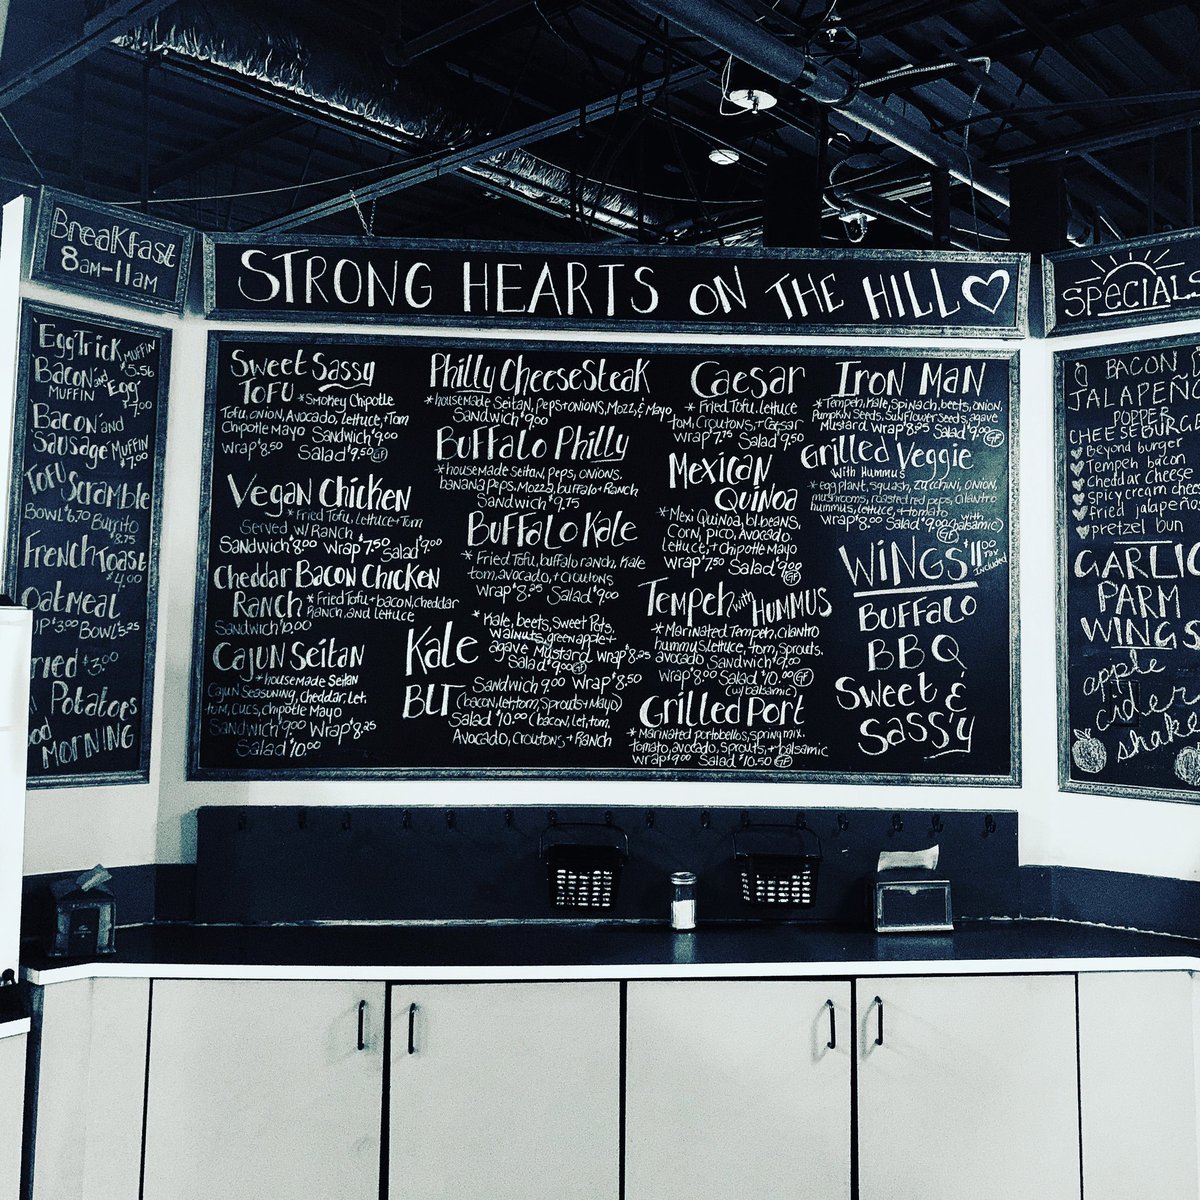 Breakfast
8am-11am
Egg Trick MUFFIN
$5.56
Bacon and Egg
MUFFIN $7.00
Bacon and
Sausage MUFFIN
$7.00
TOFU Scramble
BOWL $6.70 Burrito
$8.75
French Toast
$4.00
Oatmeal
$3.00 BOWL $5.25
$3.00
Potatoes
MORNING
STRONG HEARTS ON THE HILL
Sweet Sassy
TOFU *Smokey Chipotle
Tofu, onion, Avocado, lettuce, + Tom
Chipotle Mayo Sandwich $9.00
Wrap $8.50 Salad $9.50 GF
Vegan Chicken
*Fried Tofu, Lettuce + Tom
Served w/ Ranch
Sandwich $8.00 Wrap $7.50 Salad $9.00
Cheddar Bacon Chicken
Ranch *Fried Tofu + bacon, cheddar
Ranch, and lettuce
Sandwich $10.00
Cajun Seitan
*housemade Seitan
Cajun Seasoning, cheddar, Let.
tom, cucs, chipotle Mayo
Sandwich $9.00 Wrap $8.25
Salad $10.00
Philly CheeseSteak
*housemade Seitan, Peps + onions, Mozz, & Mayo
Sandwich $9.00
Buffalo Philly
*housemade Seitan, peps, onions,
banana peps, Mozza, buffalo + Ranch
Sandwich $9.75
Buffalo Kale
*Fried Tofu, buffalo ranch, Kale
tom, avocado, + croutons
Wrap $8.25 Salad $9.00
Kale
*Kale, beets, Sweet Pots,
walnuts, green apple +
agave Mustard Wrap $8.25
Salad $9.00 GF
BLT
Sandwich 9.00 Wrap $8.50
(bacon, let, tom, Sprouts + Mayo)
Salad $10.00 (bacon, let, tom,
Avocado, Croutons + Ranch
Caesar
*Fried Tofu, lettuce
tom, Croutons, + Caesar
Wrap $7.75 Salad $9.50
Mexican
Quinoa
*Mexi Quinoa, bl. beans,
Corn, pico, Avocado,
Lettuce, + chipotle Mayo
Wrap $7.50 Salad $9.00
GF
Tempeh with Hummus
*Marinated Tempeh, cilantro
hummus, lettuce, tom, sprouts,
avocado Sandwich $9.00
Wrap $8.00 Salad $10.00 GF
(w/ balsamic)
Grilled Port
*Marinated portbellos, spring mix,
tomato, avocado, Sprouts, + balsamic
Wrap $9.00 Salad $10.50 GF
Iron Man
*Tempeh, Kale, Spinach, beets, onion,
Pumpkin Seeds, Sunflower Seeds, agave
Mustard Wrap $8.25 Salad $9.00 GF
Grilled Veggie
with Hummus
*egg plant, squash, zucchini, onion,
mushrooms, roasted red peps, Cilantro
hummus, lettuce, + tomato with
Wrap $8.00 Salad $9.00 (balsamic)
GF
WINGS $11.00
Tax
Included
Buffalo
BBQ
Sweet &
Sassy
SPECIALS
BACON
JALAPEÑO
POPPER
CHEESEBURGER
Beyond burger
Tempeh bacon
Cheddar cheese
Spicy cream
fried jalapeño
pretzel bun
GARLIC
PARM
WINGS
apple
cider
shake